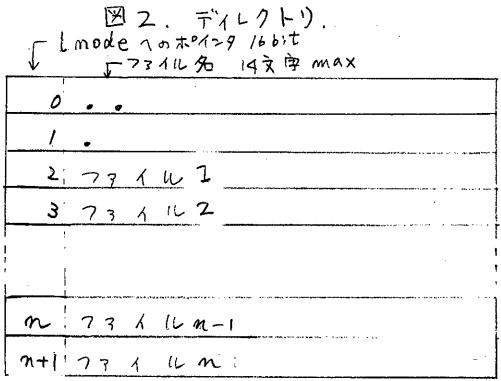 図2. ディレクトリ.
inode へのポインタ 16bit
ファイル名 14文字 max
0 ..
1 .
2 ファイル1
3 ファイル2
n ファイルn-1
n+1 ファイルn